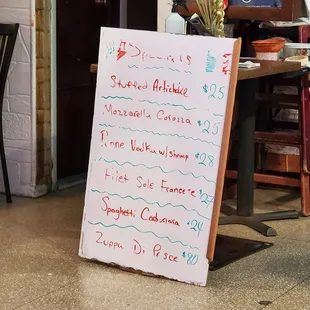 Stuffed Artichoke $25
Mozzarella Corozza $25
Penne Vodka w/ shrimp $28
Filet Sole Francese $27
Spaghetti Carbonara $24
Zuppa Di Pesce $80